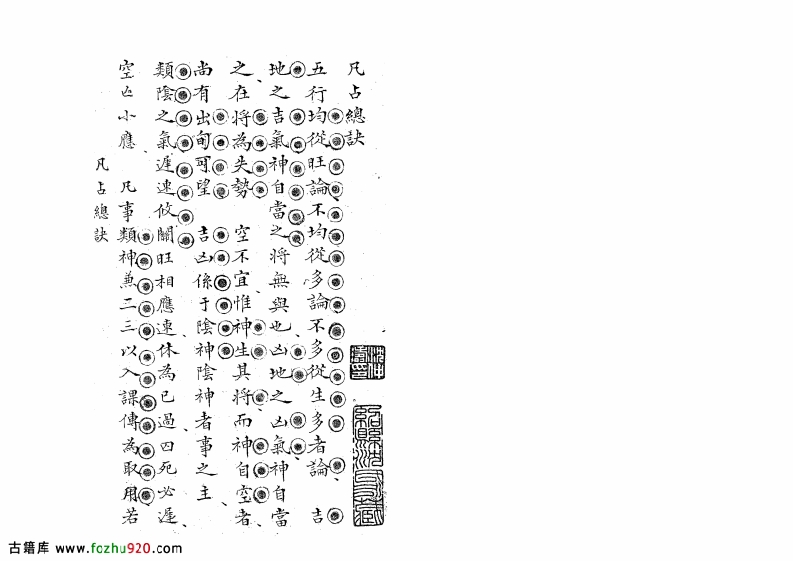 凡占總訣
五行均從旺論不均從多論不多從生多者論 吉
地之吉氣神自當之將無與也凶地之凶氣神自當
之在將為失勢 空不宜惟神生其將而神自空者
尚有出旬可望 吉凶係于陰神陰神者事之主
類陰之氣遲速攸關旺相應速休為已過囚死必遲
空亡小應 凡事類神兼二三以入課傳為取用若
凡占總訣
古籍库 www.fozhu920.com